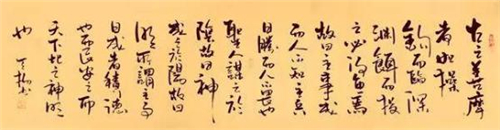 古之善摩
者如操
鈎而臨深
淵餌而投
之必得魚焉
故曰主事成
而人不知主兵
日勝而人不畏也
聖人謀之於
陰故曰神
成之於陽故曰
明所謂主事
日成者積德
也而民安之而
天下比之神明
也